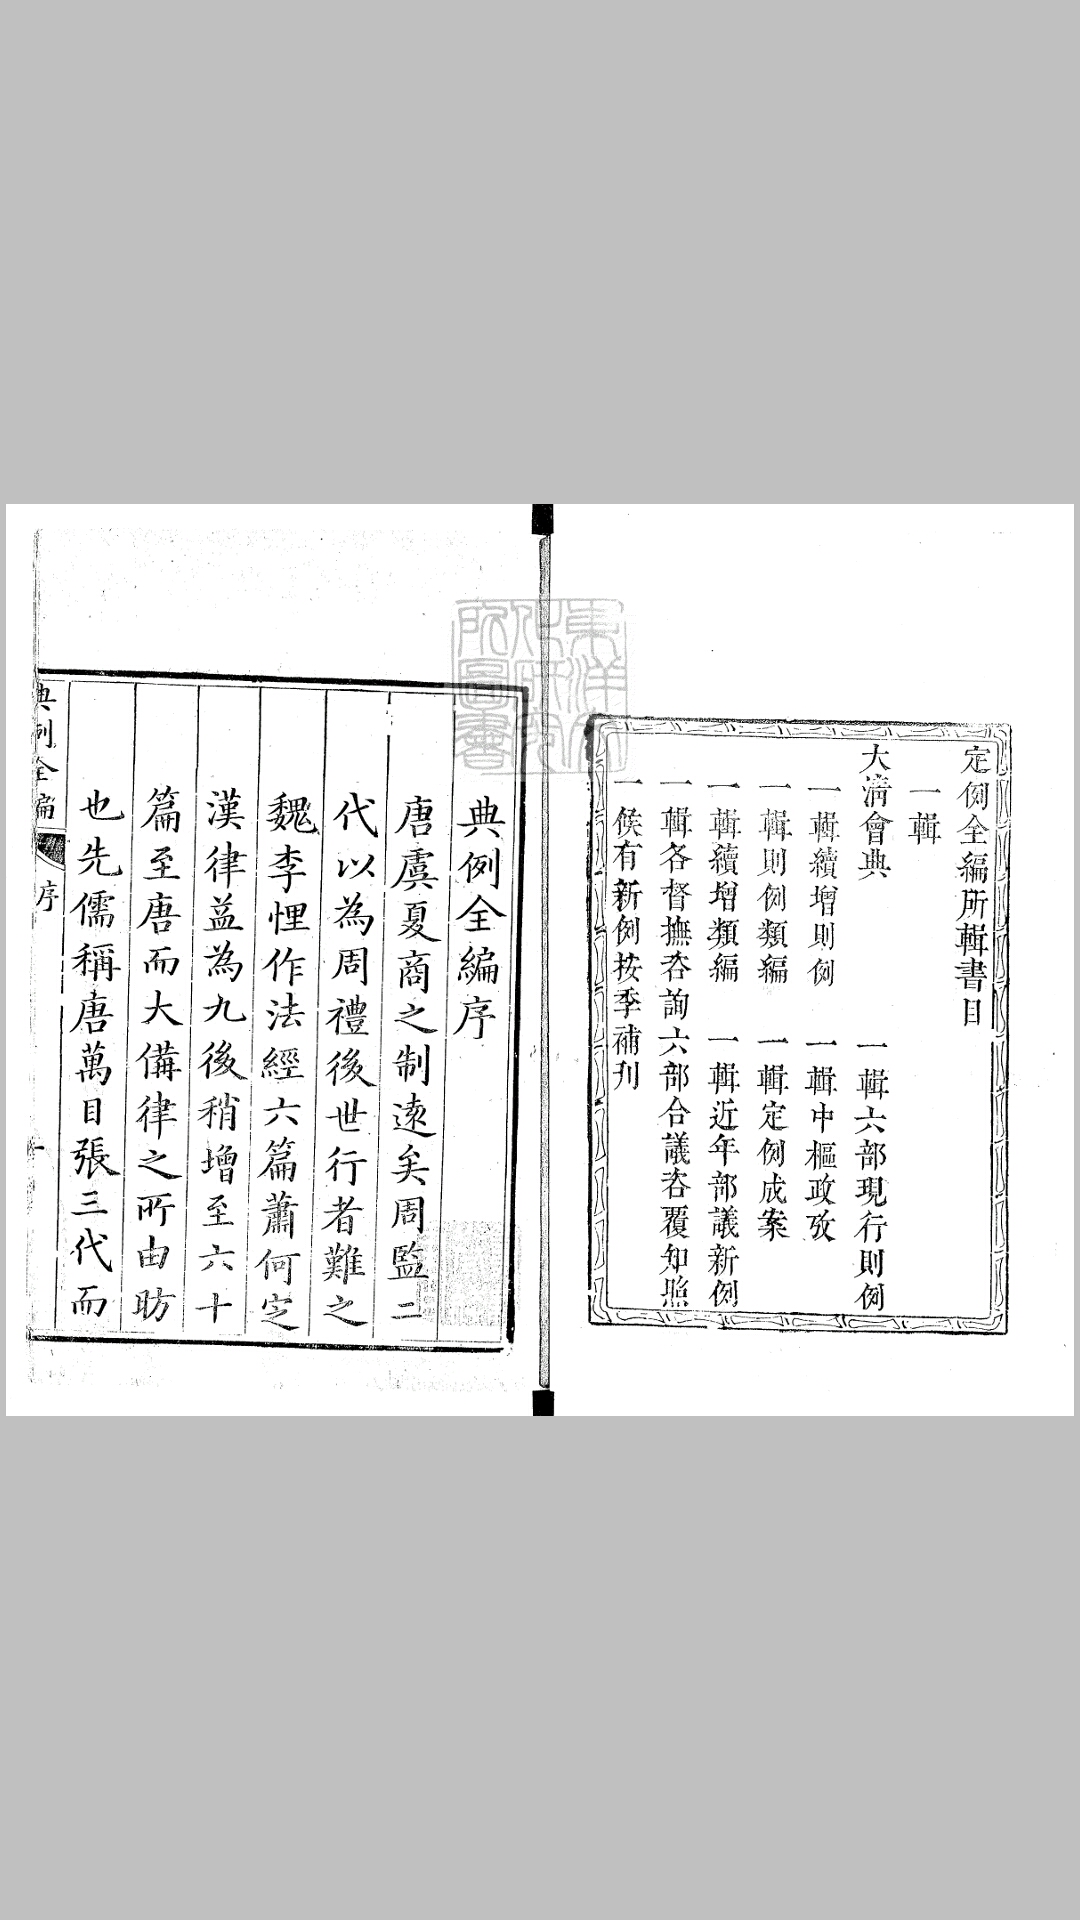 定例全編所輯書目
一輯
大淸會典
一輯六部現行則例
一輯續增則例
一輯中樞政攷
一輯則例類編
一輯定例成案
一輯續增類編
一輯近年部議新例
一輯各督撫咨詢六部合議咨覆知照
一候有新例按季補刋
典例全編序
唐虞夏商之制遠矣周監二
代以為周禮後世行者難之
魏李悝作法經六篇蕭何定
漢律益為九後稍增至六十
篇至唐而大備律之所由昉
也先儒稱唐萬目張三代而
典例全編
序
東洋文化研究所圖書